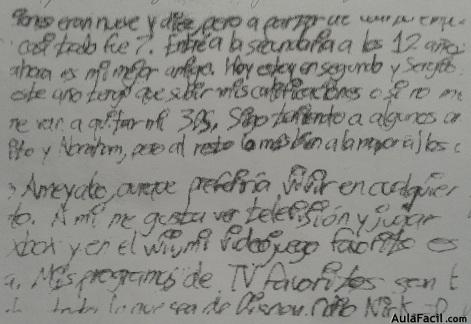 eran nueve y diez, pero a partir de
casi todo fue 7. Entré a la secundaria a los 12 años
ahora es mi mejor amigo. Hoy estoy en segundo y Sergio
este año tengo que subir mis calificaciones o si no me
me van a quitar mi 3DS. Sigo a algunos
y Abraham, pero al resto (a la mayoría) los
Ameyalco, aunque preferiría vivir en cualquier
to. A mi me gusta ver televisión y jugar
xbox y en el wii, mi videojuego favorito es
a. Mis programas de TV favoritos son t
de Disney,
AulaFacil.com